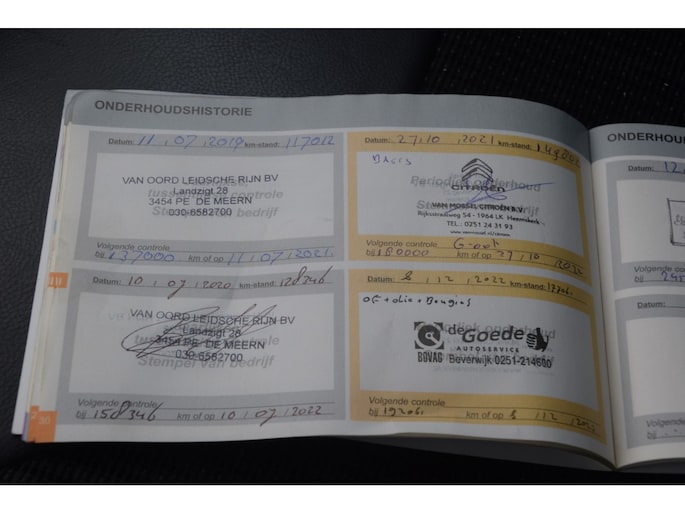 ONDERHOUDSHISTORIE
Datum: 11 , 07 , 2019 km-stand: 117012
VAN OORD LEIDSCHE RIJN BV
Landzigt 28
3454 PE DE MEERN
030-6662700
Volgende controle
bij 137000 km of op 11 , 07 , 2021
Datum: 10 , 07 , 2020 km-stand: 128346
VAN OORD LEIDSCHE RIJN BV
Landzigt 28
3454 PE DE MEERN
030-6662700
Stempel van bedrijf
Volgende controle
bij 158346 km of op 10 , 07 , 2022
30
Datum: 27 , 10 , 2021 km-stand:
Periodiek onderhoud
CITROËN
VAN MOSSEL CITROËN B.V.
Rijksstraatweg 54 - 1964 LK Heemskerk
TEL.: 0251 24 31 93
Volgende controle
bij 180000 km of op 27 , 10
Datum: 8 , 12 , 2022 km-stand:
oF + olie + Bougies
Goede
AUTOSERVICE
BOVAG Beverwijk 0251-214600
Volgende controle
bij km of op 8 , 12
Datum: 12
Volgende
bij
Datum:
Volgende
bij